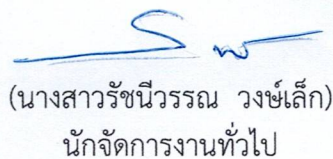 (นางสาวรัชนีวรรณ วงษ์เล็ก)
นักจัดการงานทั่วไป